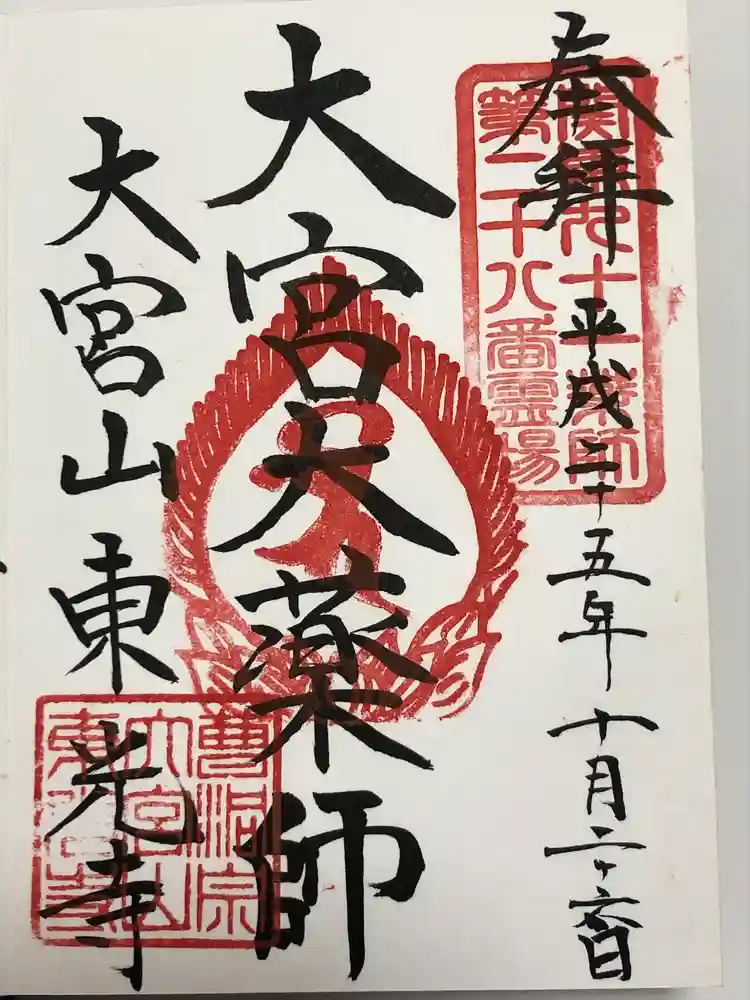 奉拝
関東九十一薬師
第二十八番霊場
平成二十五年十月二十六日
大宮大薬師
大宮山東光寺
曹洞宗
大宮山
東光寺